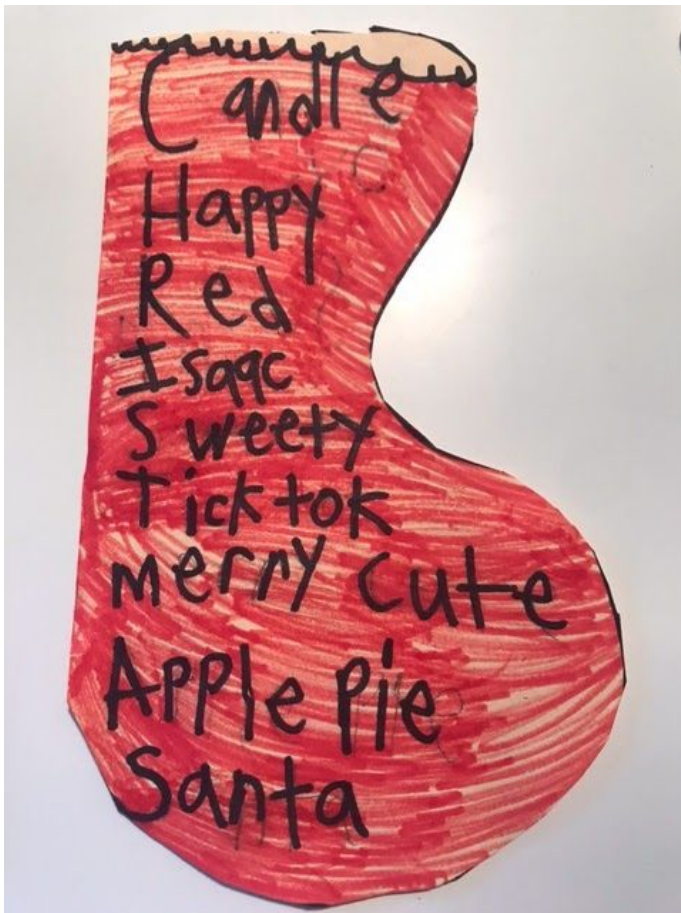 Candle
Happy
Red
Isaac
Sweety
Ticktok
merry cute
Apple pie
Santa